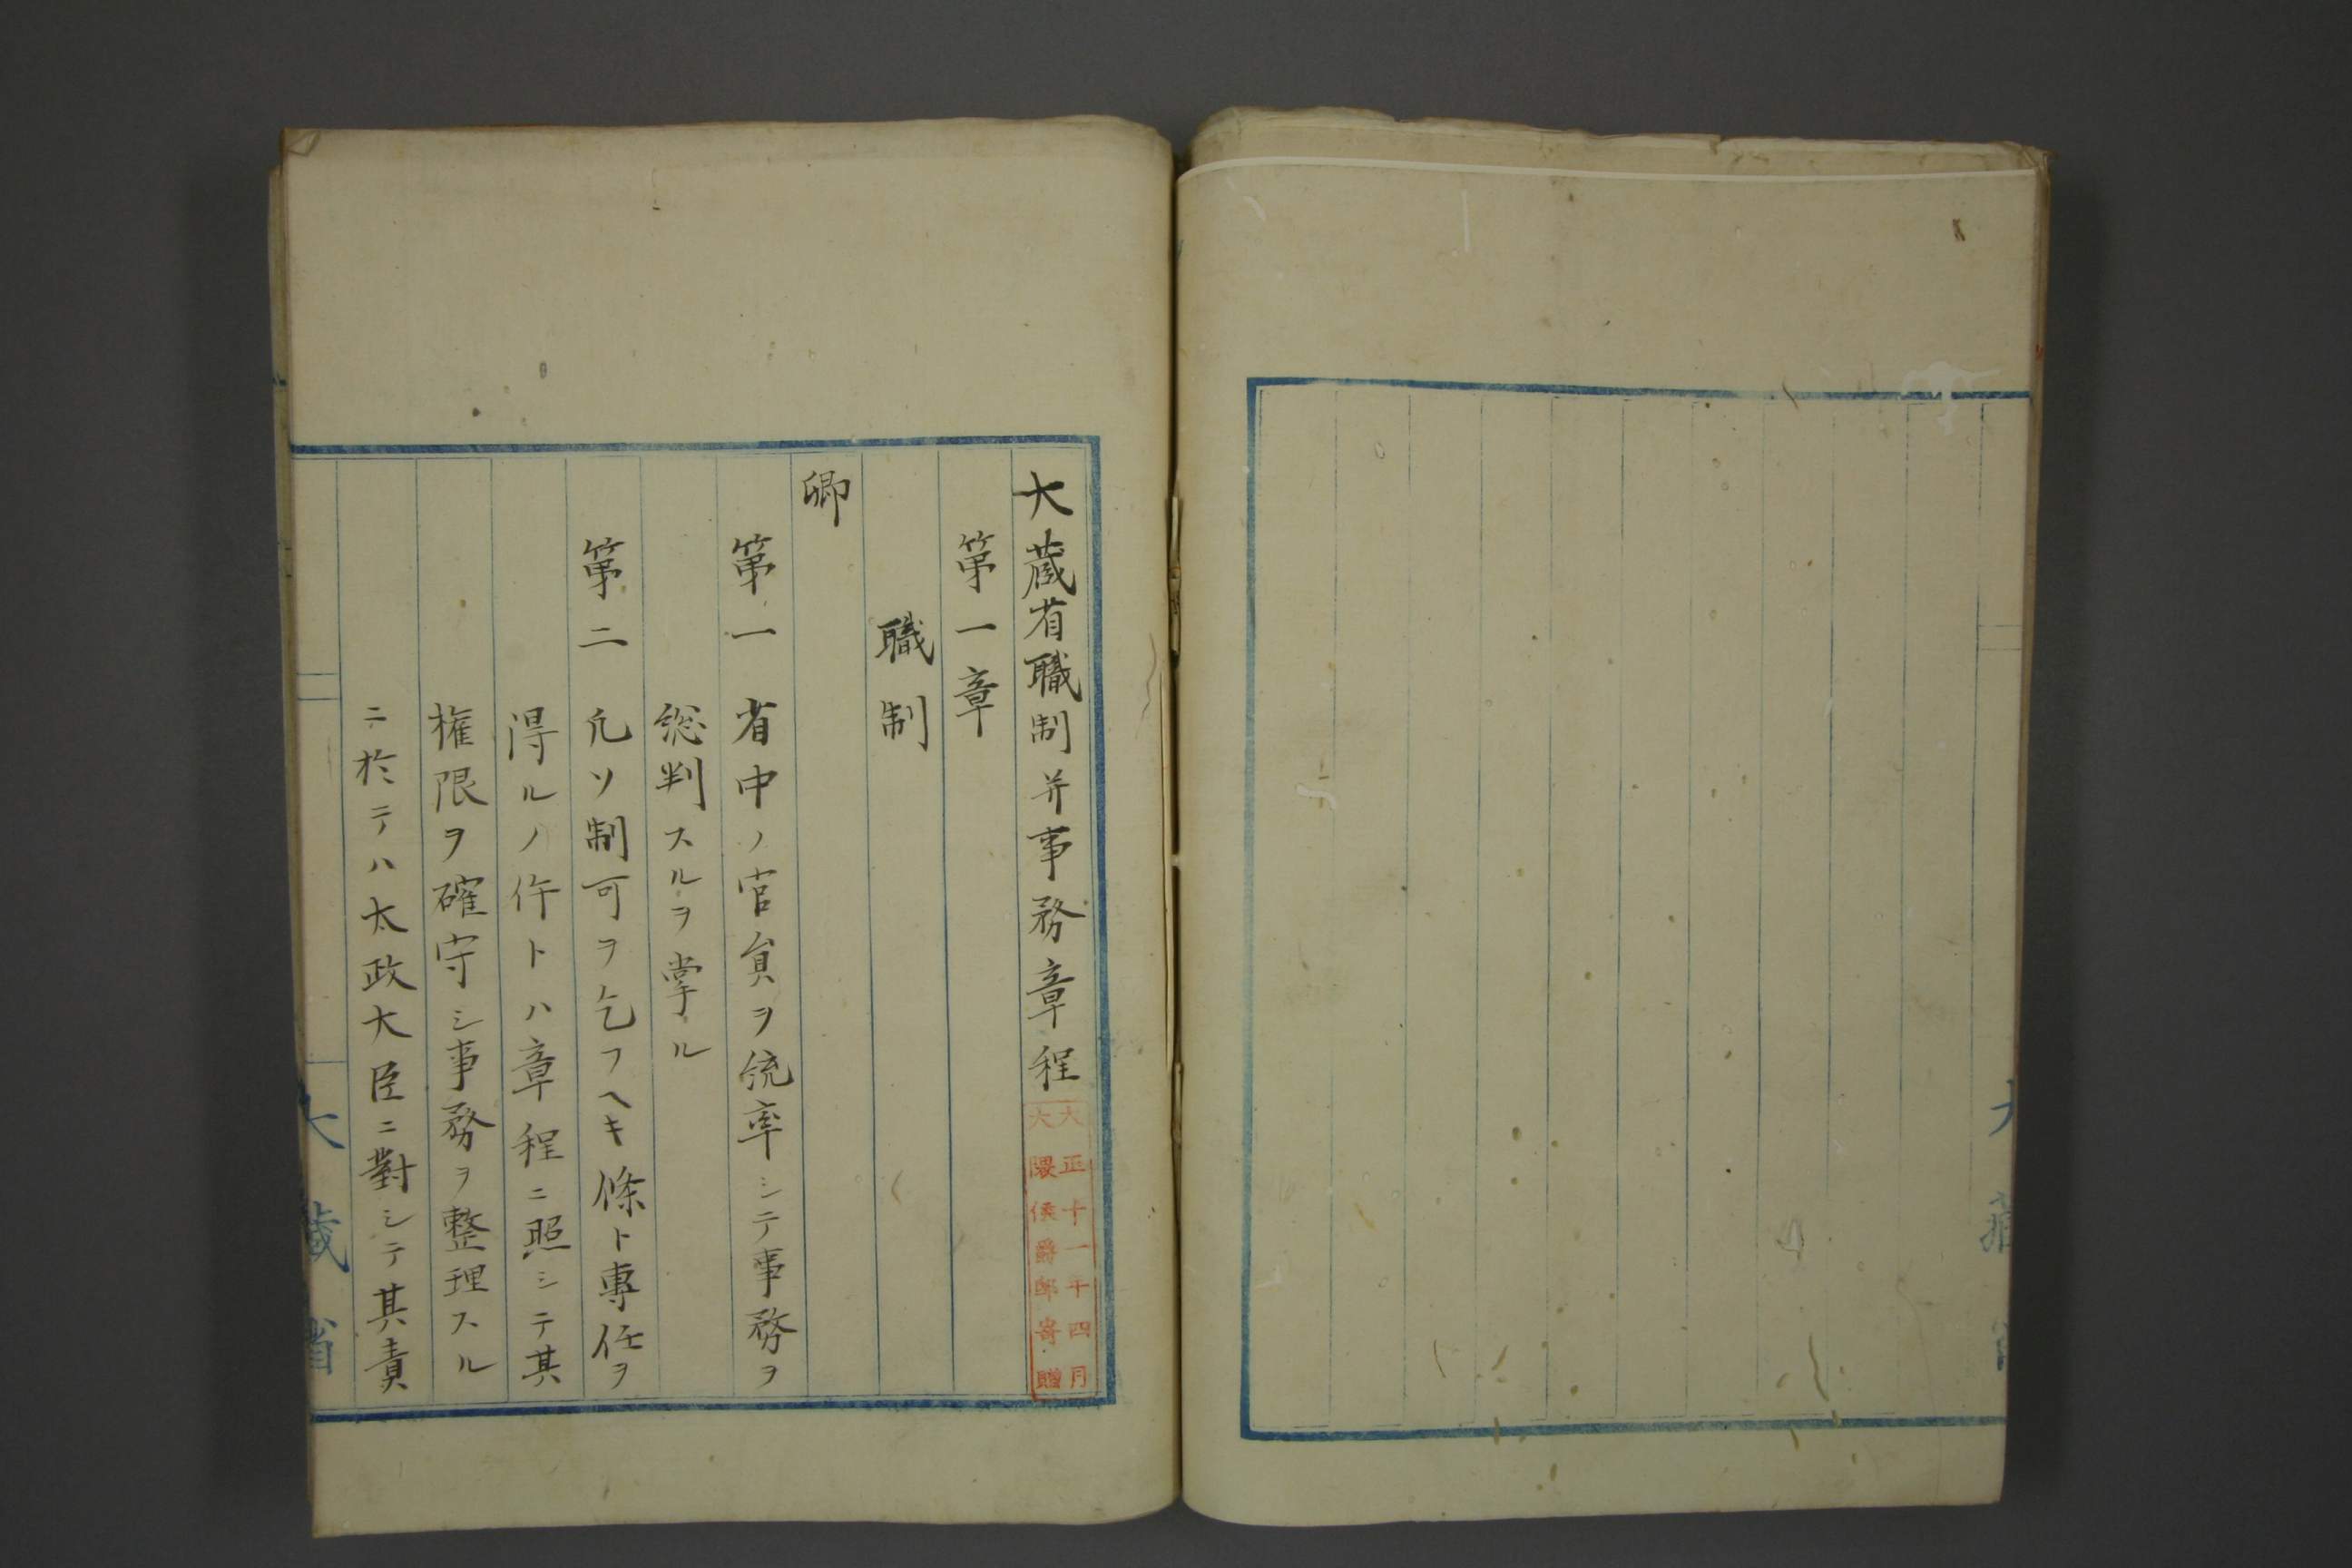 大蔵省職制并事務章程
大正十一年四月
大隈侯爵邸寄贈
第一章
職制
卿
第一 省中ノ官員ヲ統率シテ事務ヲ
総判スルヲ掌ル
第二 凢ソ制可ヲ乞フヘキ條ト專任ヲ
得ルノ件トハ章程ニ照シテ其
権限ヲ確守シ事務ヲ整理スル
ニ於テハ太政大臣ニ對シテ其責
大藏省